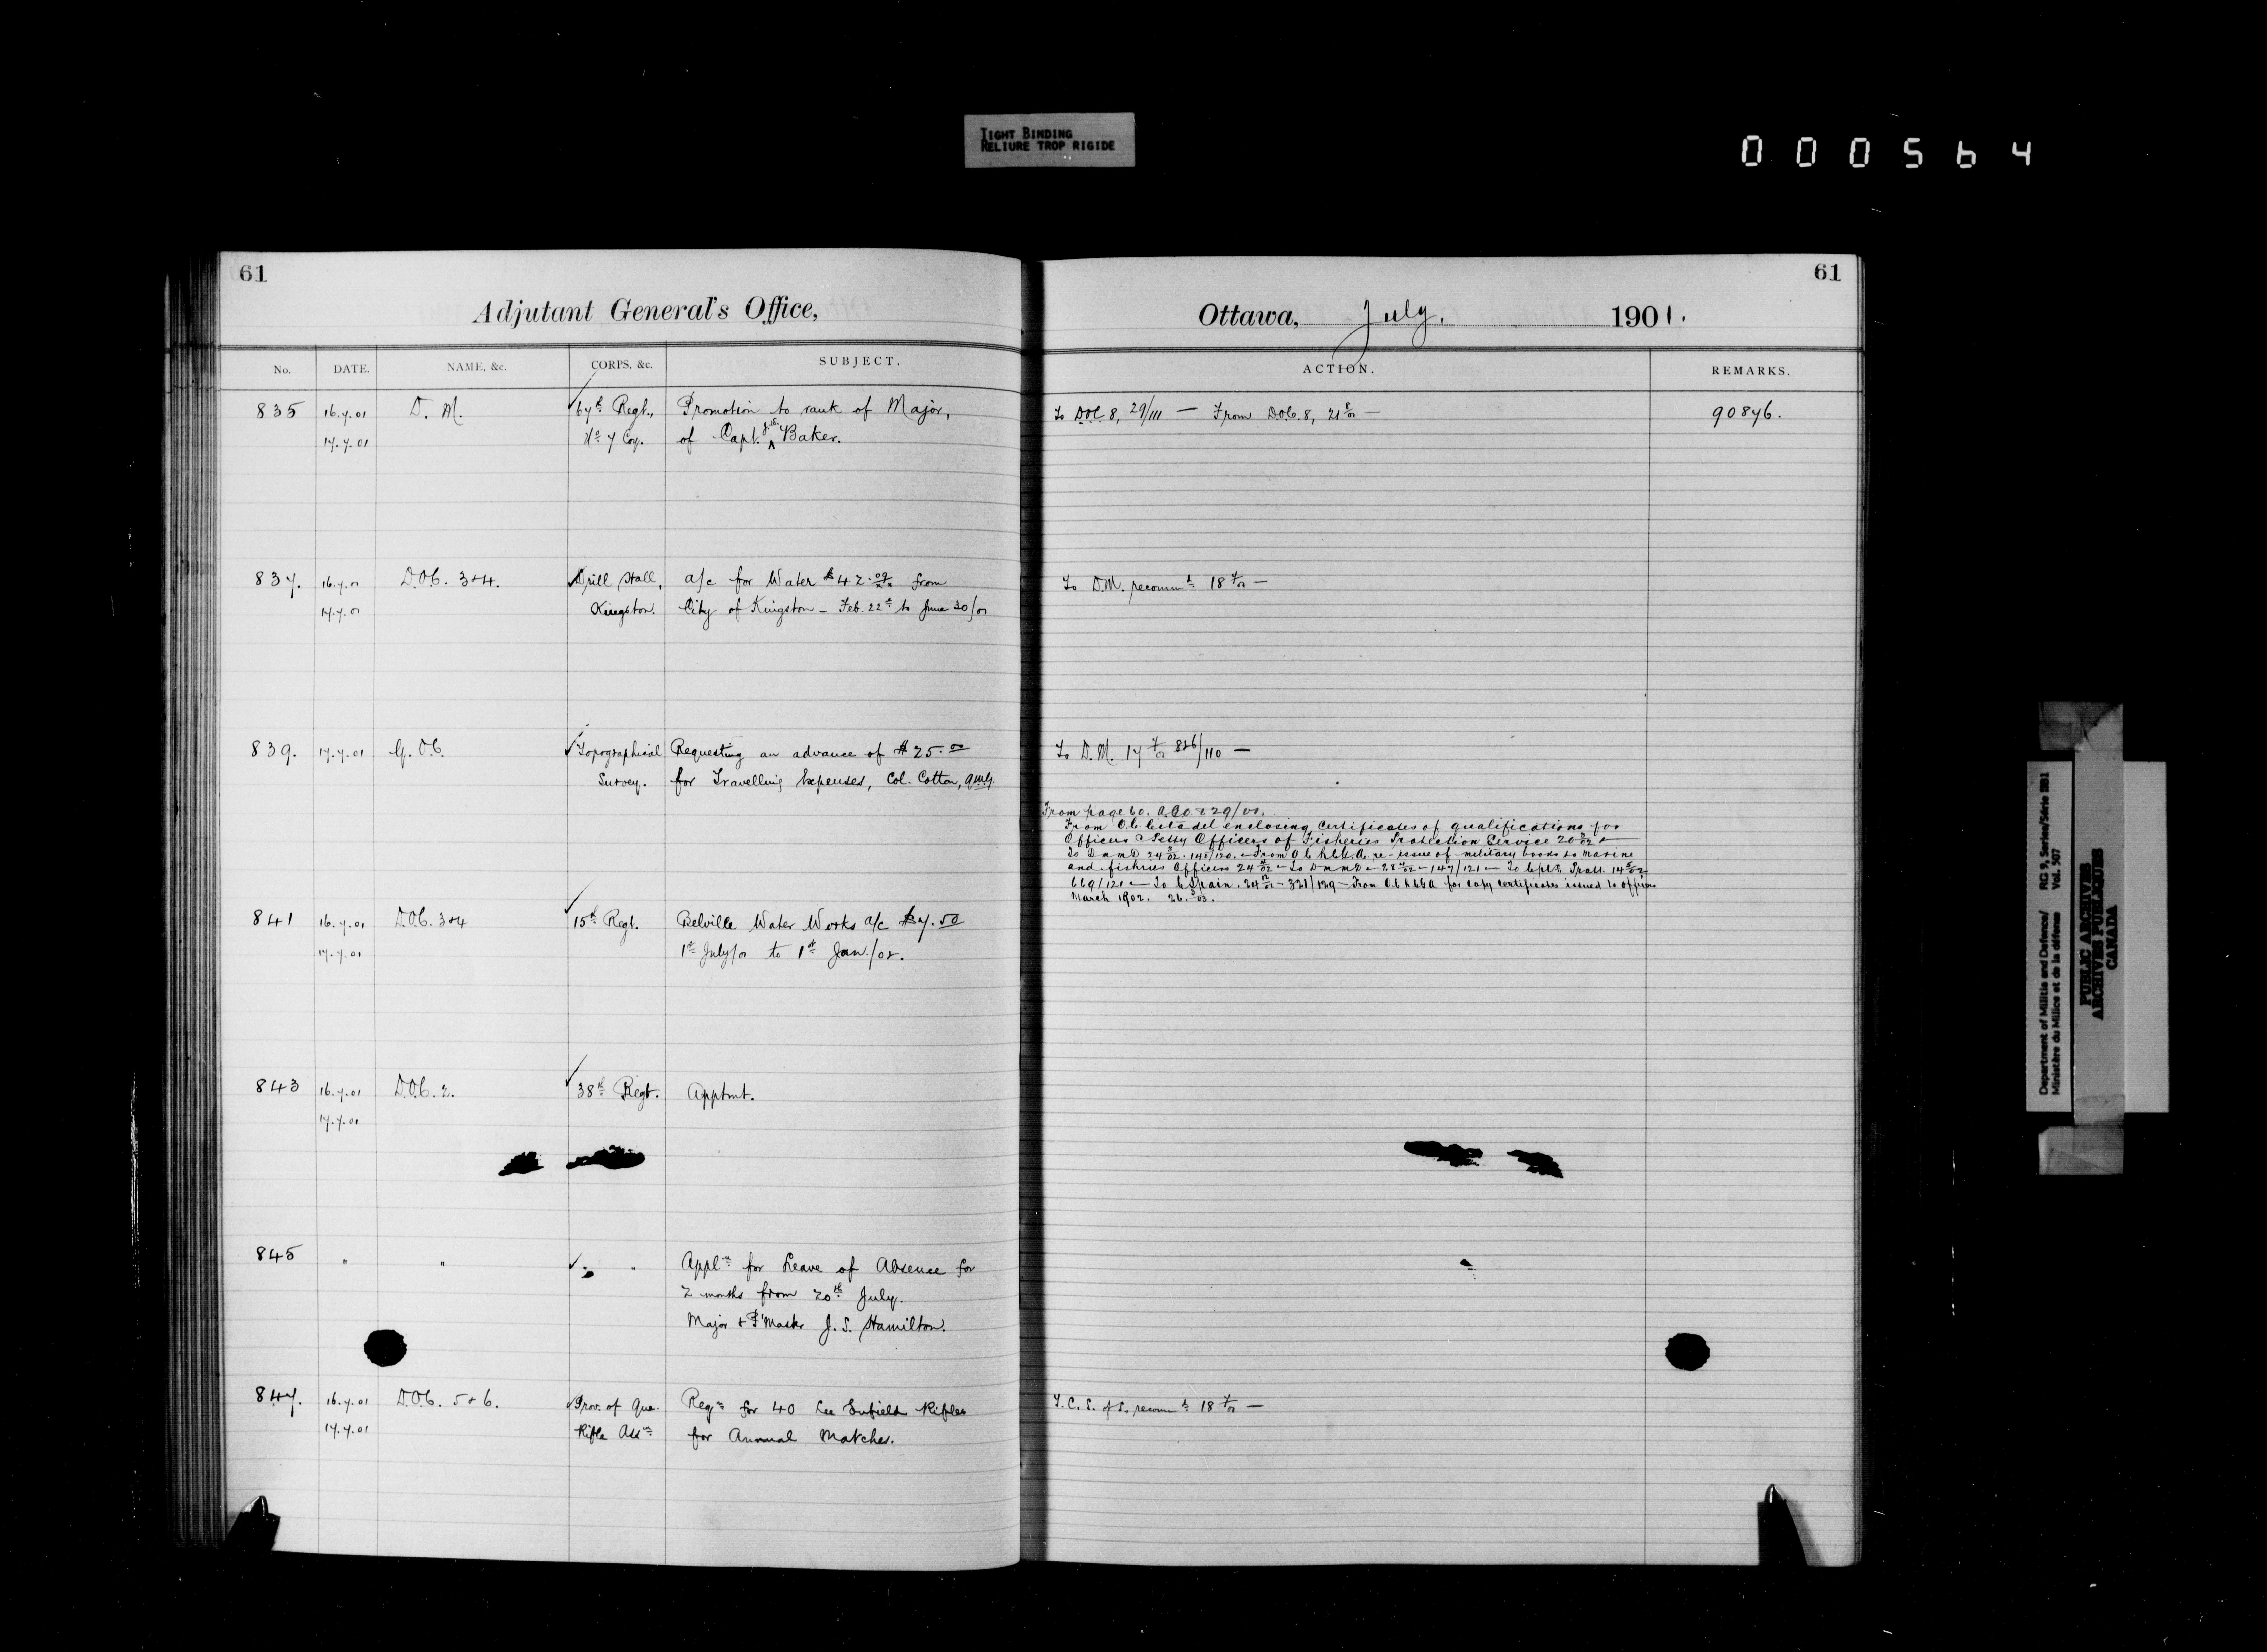 TIGHT BINDING
RELIURE TROP RIGIDE
000564
61
Adjutant General's Office,
No. DATE. NAME, &c. CORPS, &c. SUBJECT.
835 16.7.01 D. M. 67th Regt., Promotion to rank of Major,
17.7.01 No 7 Coy. of Capt. Baker.
837. 16.7.01 D.O.C. 3+4. Drill Hall, a/c for Water $42.09 from
17.7.01 Kingston. City of Kingston - Feb. 22nd to June 30/01
839. 17.7.01 G.O.C. Topographical Requesting an advance of $25.00
Survey. for Travelling Expenses, Col. Cotton, QMG.
841 16.7.01 D.O.C. 3+4 15th Regt. Belville Water Works a/c $7.50
17.7.01 1st July/01 to 1st Jan./02.
843 16.7.01 D.O.C. 2. 38th Regt. Apptmt.
17.7.01
845 " " " Appln for Leave of Absence for
2 months from 20th July.
Major + P'Master J. S. Hamilton.
847. 16.7.01 D.O.C. 5+6. Prov. of Que. Reqn for 40 Lee Enfield Rifles
17.7.01 Rifle Assn for Annual Matches.
61
Ottawa, July, 1901.
ACTION. REMARKS.
To DOC 8, 29/111 — From D.O.C. 8, 21 8/01 — 90876.
To D.M. recommd 18 7/01 —
To D.M. 17 7/01 826/110 —
From page 60.
From O.C. Citadel enclosing Certificates of qualifications for
Officers & Petty Officers of Fisheries Protection Service
re-issue of military books to marine
and fisheries Officers
for copy certificates issued to officers
March 1902. 26. 3/03.
recommd 18 7/01 —
Department of Militia and Defence/ RG 9, Series/Série IIB1
Ministère du Milice et de la défense Vol. 507
PUBLIC ARCHIVES
ARCHIVES PUBLIQUES
CANADA